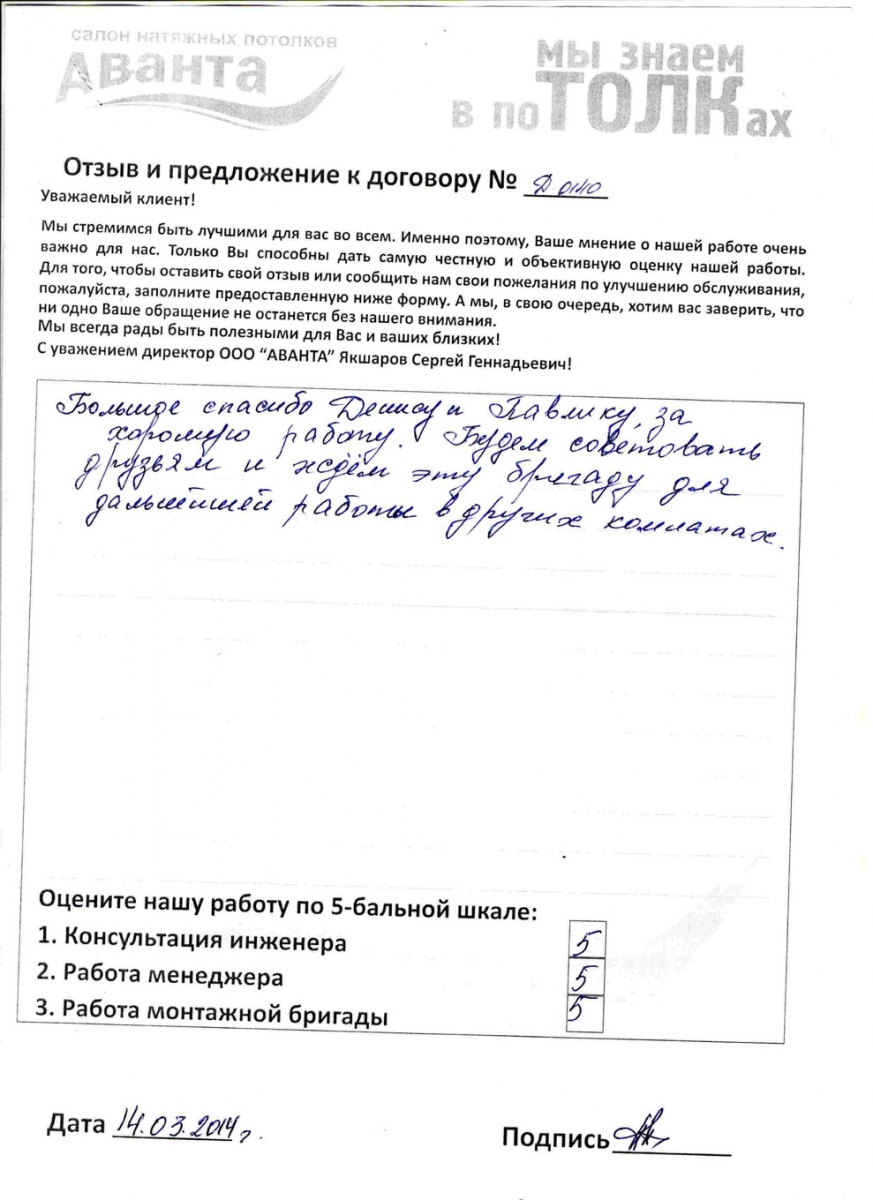 салон натяжных потолков
Аванта
мы знаем
в поТОЛКах
Отзыв и предложение к договору № Д 0140
Уважаемый клиент!
Мы стремимся быть лучшими для вас во всем. Именно поэтому, Ваше мнение о нашей работе очень
важно для нас. Только Вы способны дать самую честную и объективную оценку нашей работы.
Для того, чтобы оставить свой отзыв или сообщить нам свои пожелания по улучшению обслуживания,
пожалуйста, заполните предоставленную ниже форму. А мы, в свою очередь, хотим вас заверить, что
ни одно Ваше обращение не останется без нашего внимания.
Мы всегда рады быть полезными для Вас и ваших близких!
С уважением директор ООО “АВАНТА” Якшаров Сергей Геннадьевич!
Большое спасибо Денису и Павлику, за
хорошую работу. Будем советовать
друзьям и ждём эту бригаду для
дальнейшей работы в других комнатах.
Оцените нашу работу по 5-бальной шкале:
1. Консультация инженера 5
2. Работа менеджера 5
3. Работа монтажной бригады 5
Дата 14.03.2014 г.
Подпись